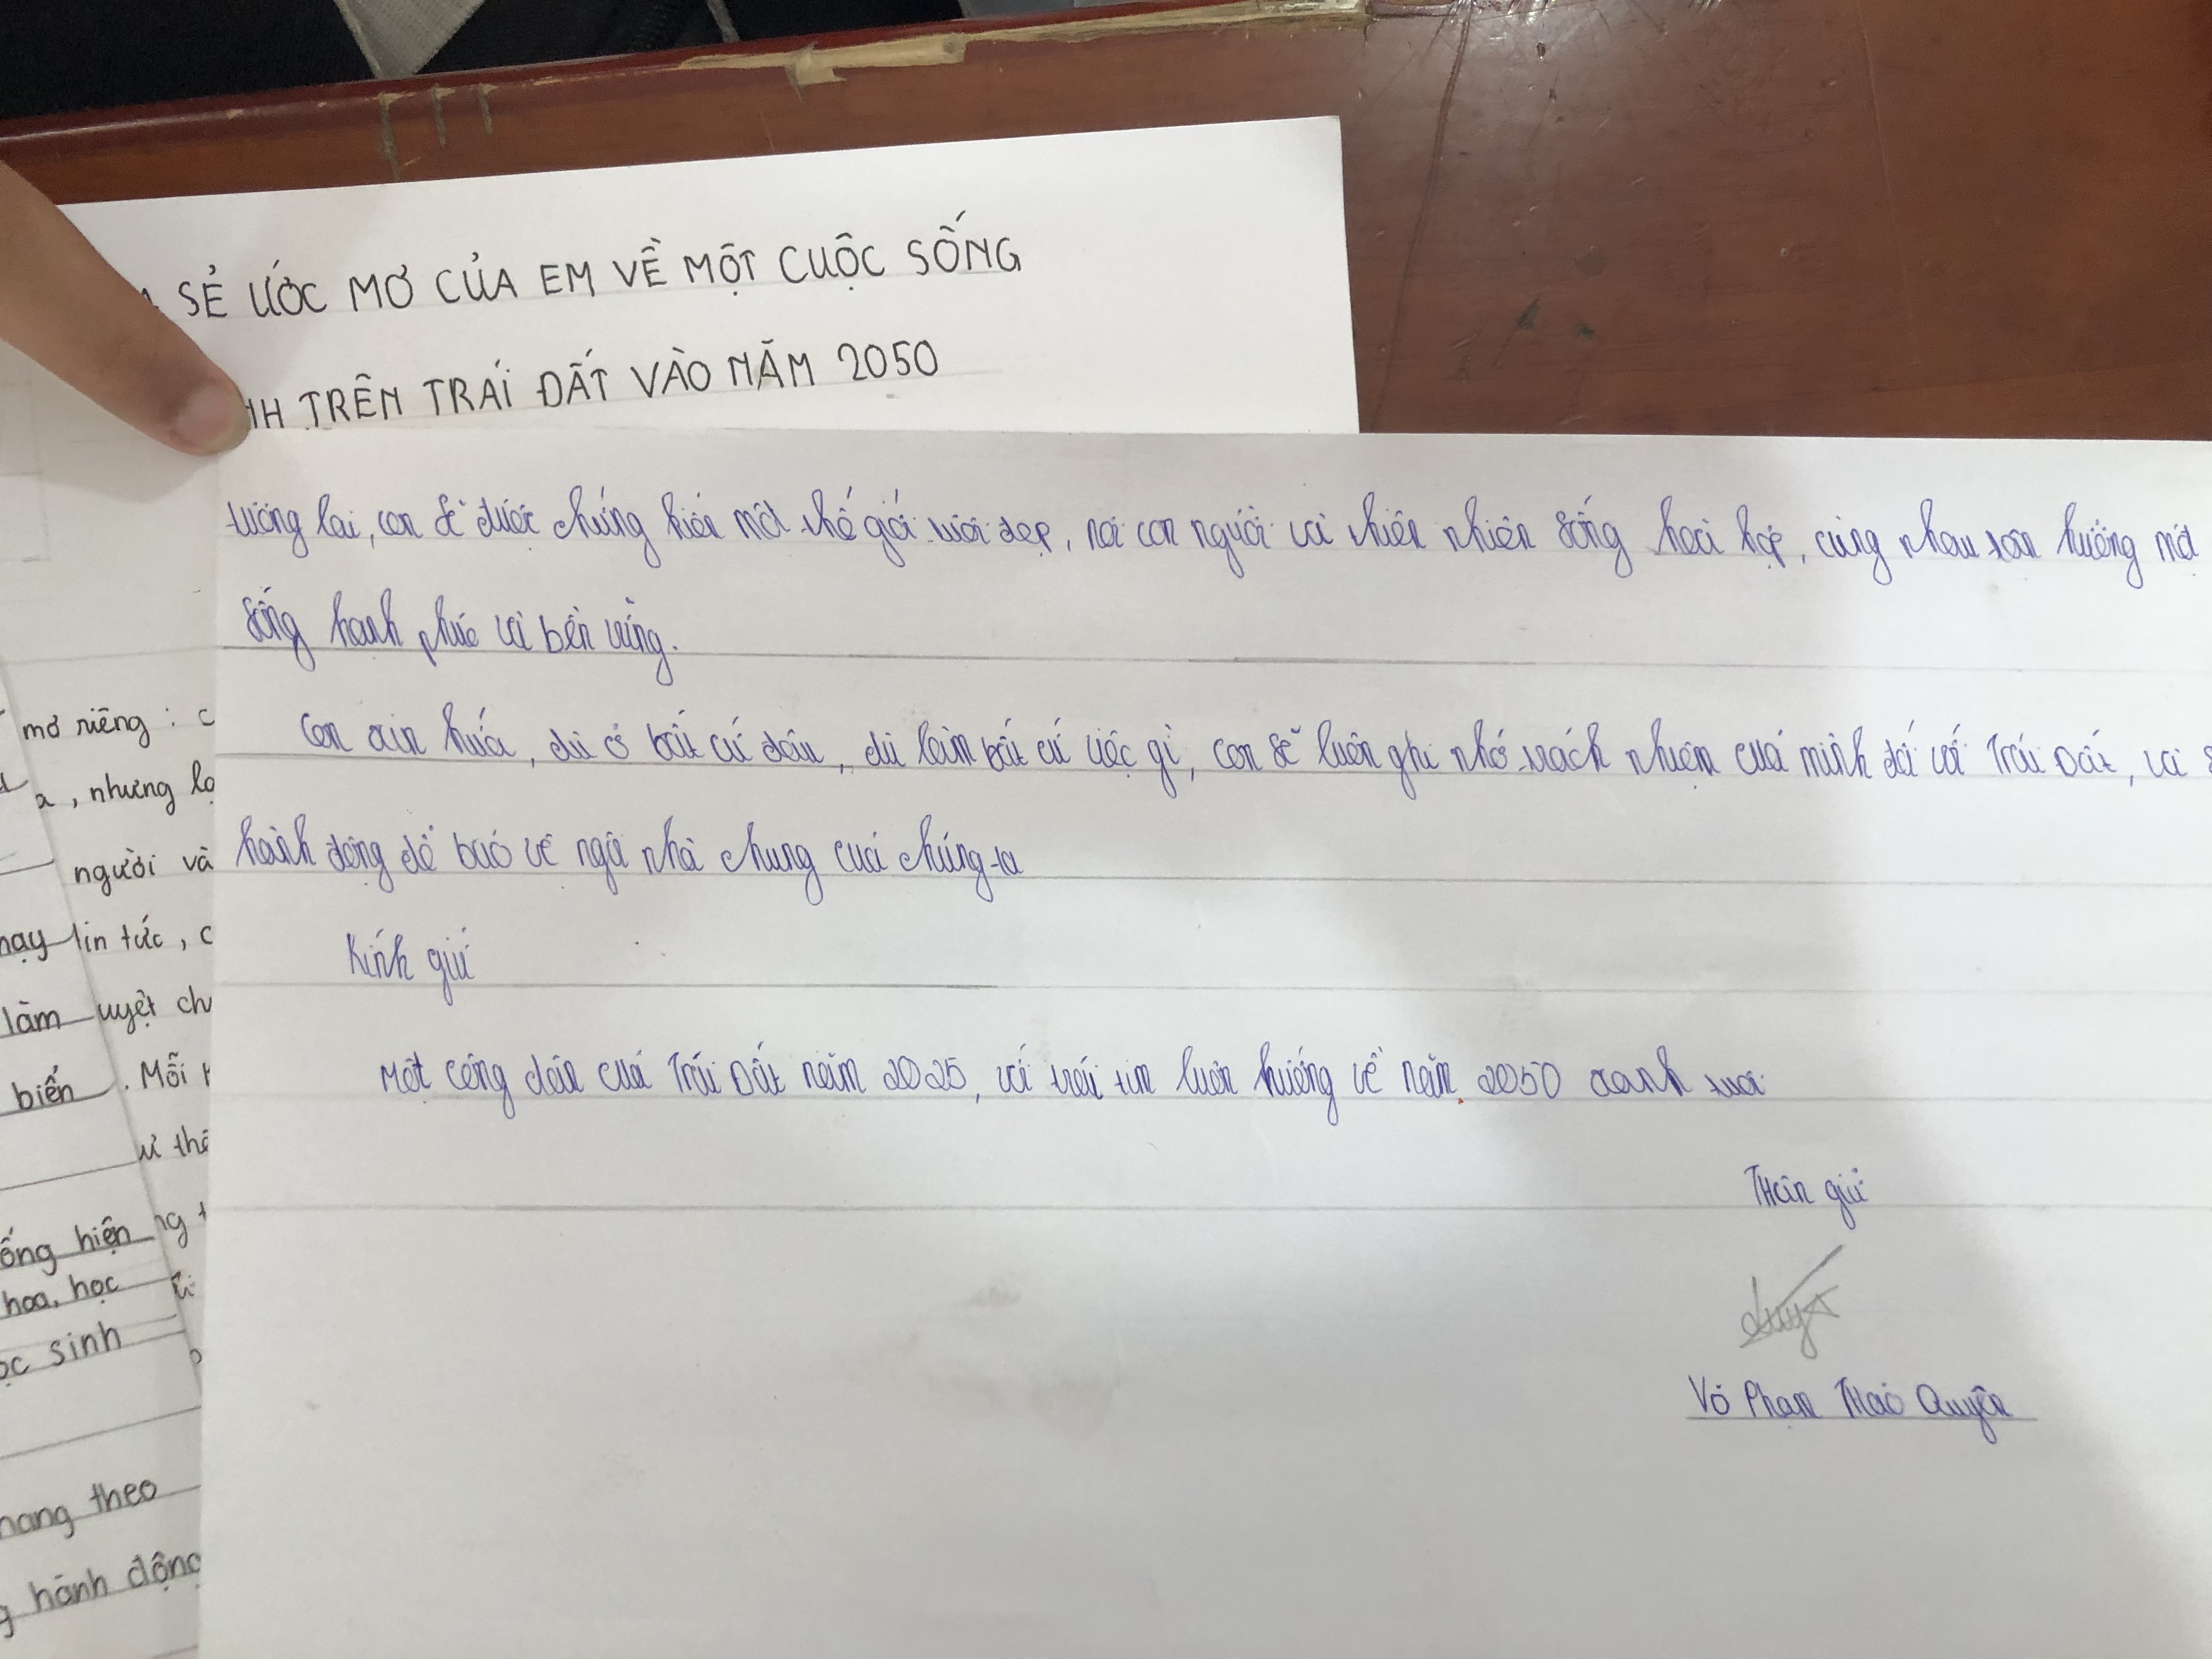 SẺ ƯỚC MƠ CỦA EM VỀ MỘT CUỘC SỐNG
TRÊN TRÁI ĐẤT VÀO NĂM 2050
tương lai, con sẽ được chứng kiến một thế giới tươi đẹp, nơi con người và thiên nhiên sống hoà hợp, cùng nhau tận hưởng một
sống hạnh phúc và bền vững.
Con xin hứa, dù ở bất cứ đâu, dù làm bất cứ việc gì, con sẽ luôn ghi nhớ trách nhiệm của mình đối với Trái Đất, và
hành động để bảo vệ ngôi nhà chung của chúng ta
Kính gửi
Một công dân của Trái Đất năm 2025, với trái tim luôn hướng về năm 2050 xanh tươi
Thân gửi
Võ Phạm Thảo Quyên
mơ riêng :
, nhưng
người và
tin tức ,
làm
biến . Mỗi
hiện
hoa, học
sinh
theo
hành động